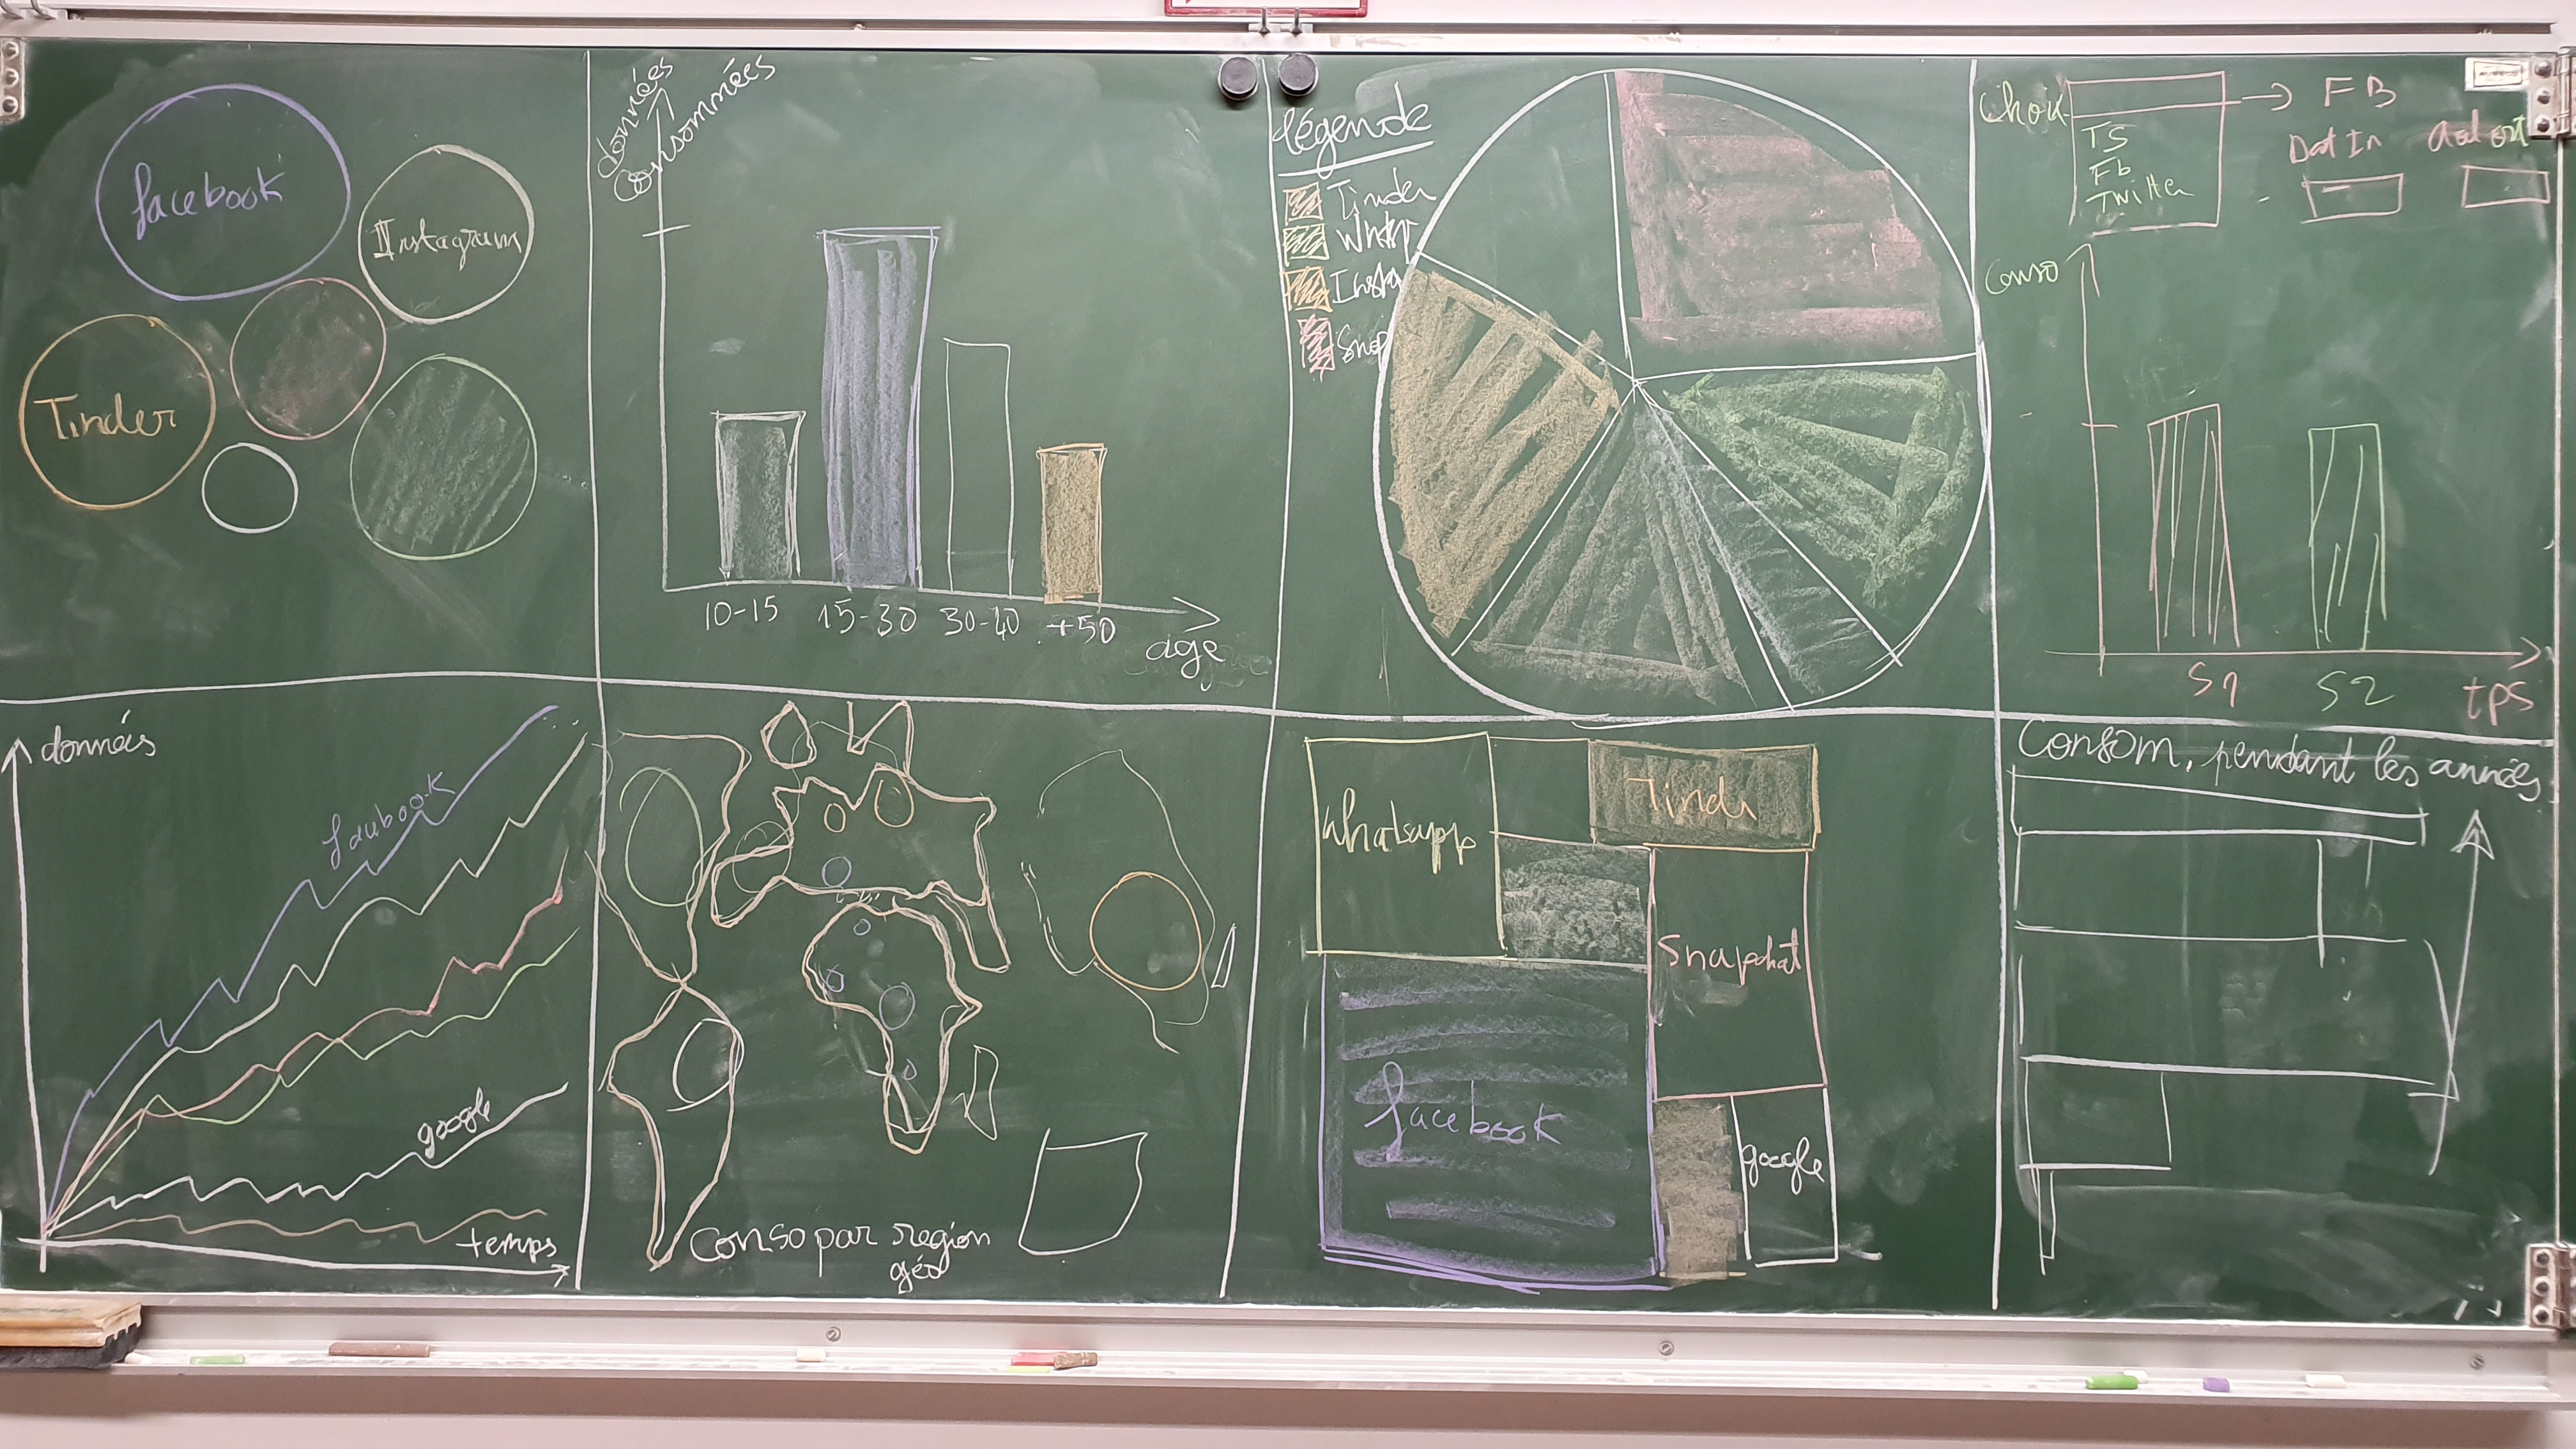 facebook
IInstagram
Tinder
données
Consommées
10-15
15-30
30-40
+50
age
légende
Tinder
Insta
Snap
Choix
TS
Fb
Twitter
FB
Dat In
Conso
S1
S2
tps
données
google
temps
Conso par region
géo
Whatsapp
Tinder
Snapchat
facebook
google
Consom, pendant les années